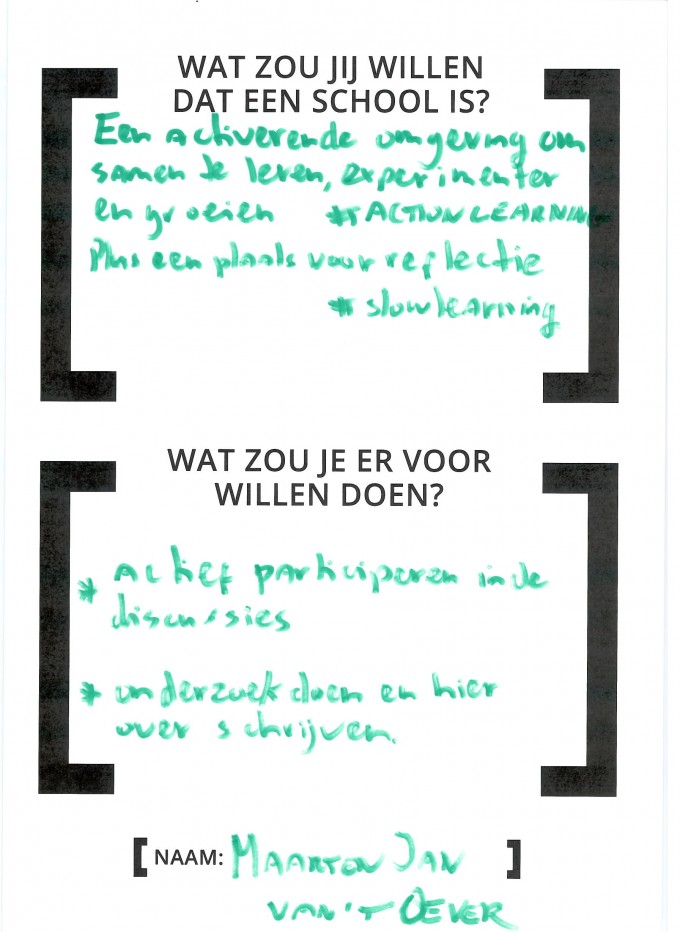 WAT ZOU JIJ WILLEN
DAT EEN SCHOOL IS?
Een activerende omgeving om
samen te leren, experimenter
en groeien #ACTIONLEARNING
Plus een plaats voor reflectie
# slowlearning
WAT ZOU JE ER VOOR
WILLEN DOEN?
* Actief participeren in de
discussies
* onderzoek doen en hier
over schrijven.
NAAM: MAARTEN JAN
VAN 'T OEVER